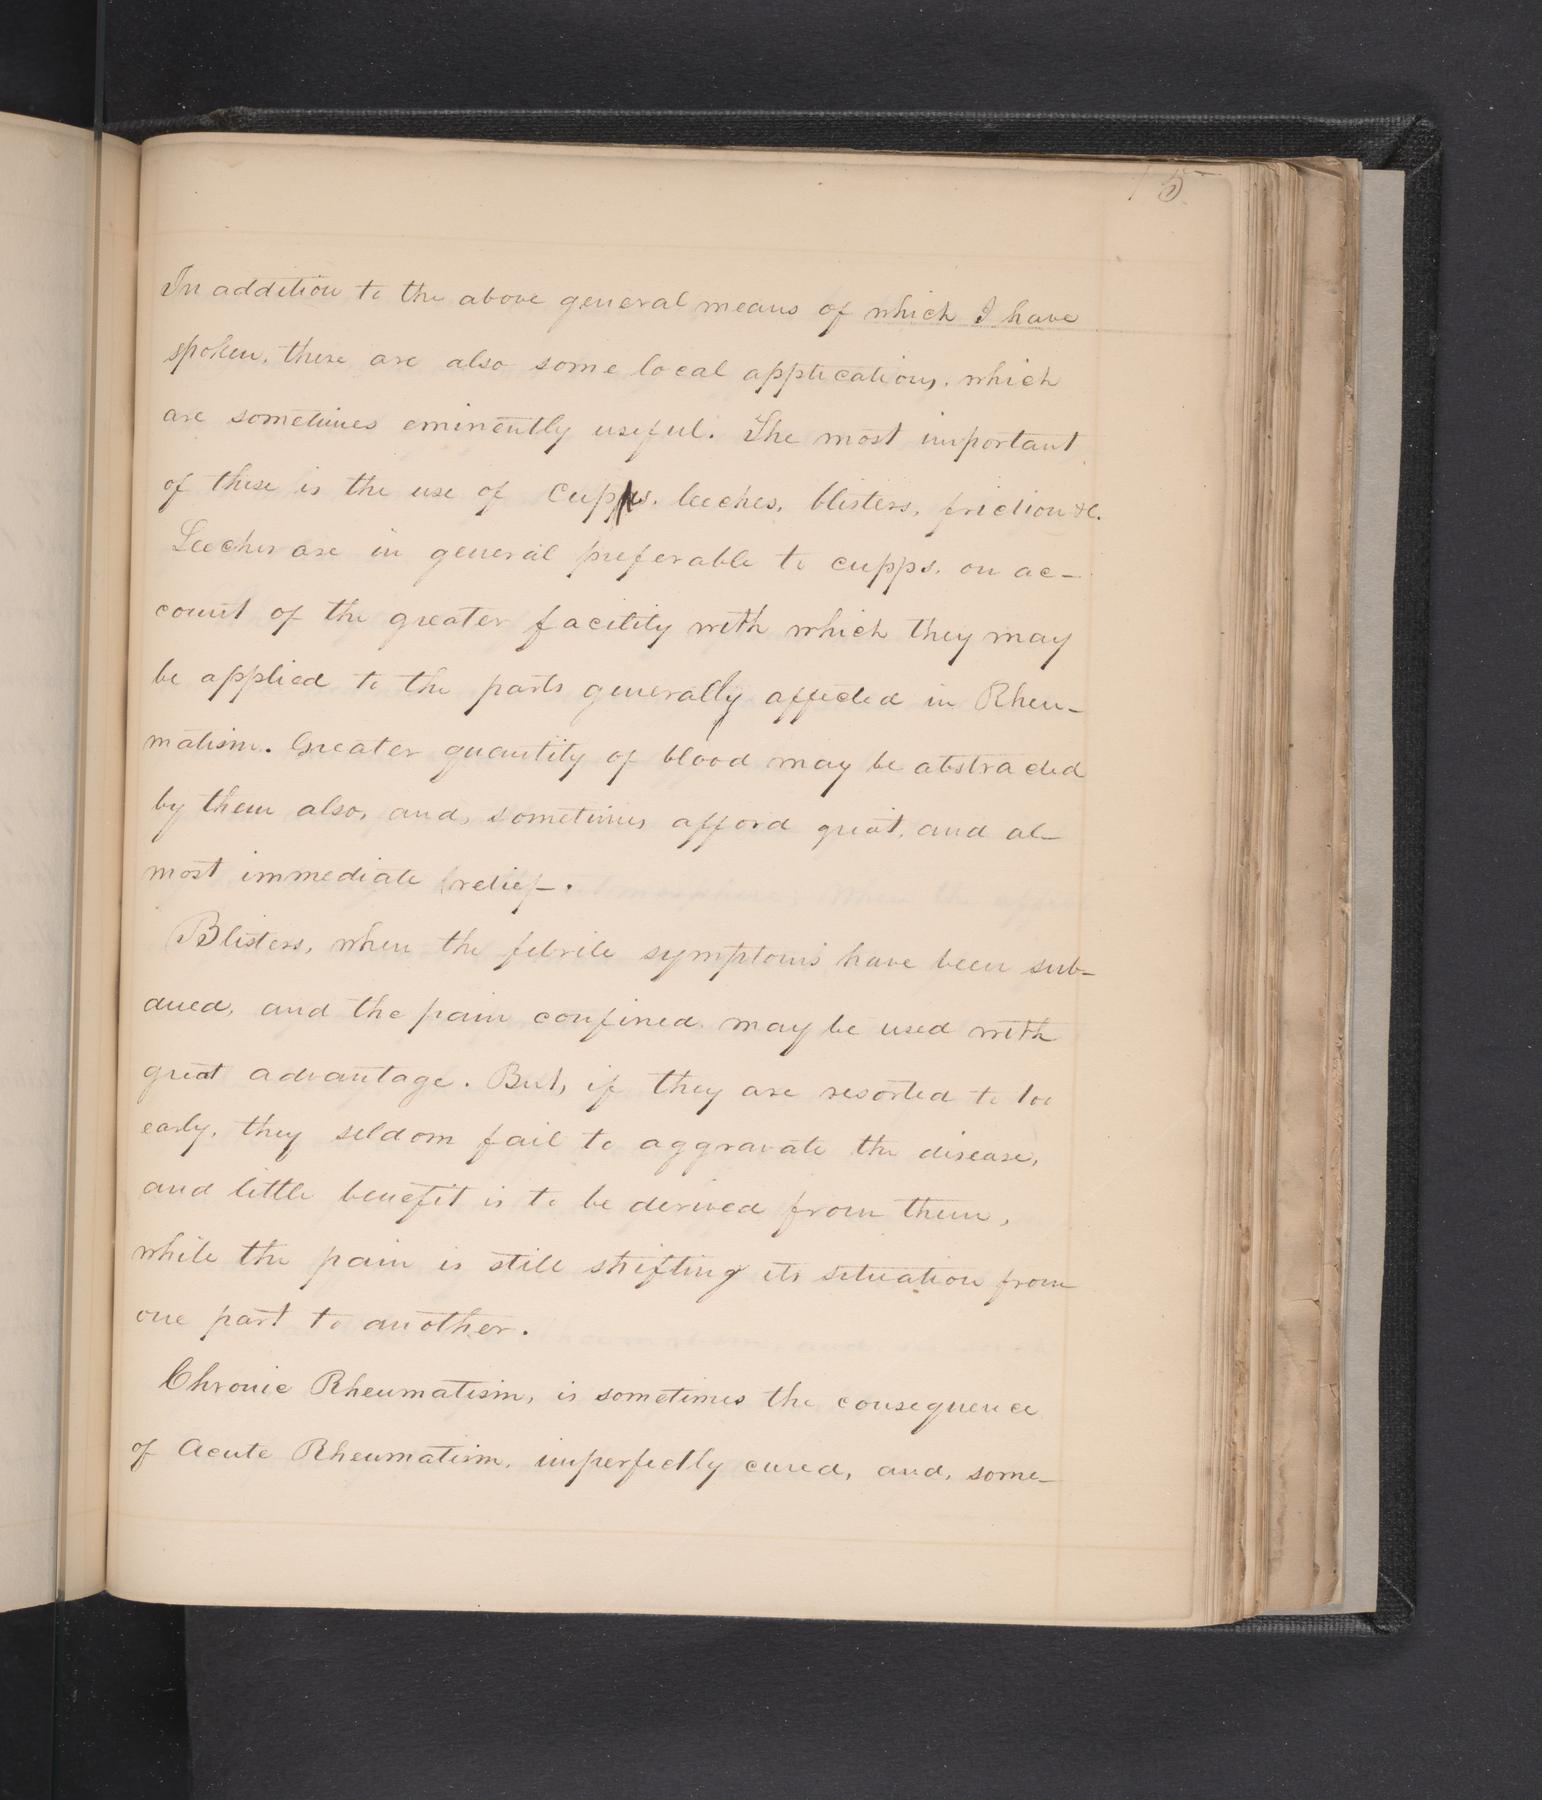 15
In addition to the above general means of which I have
spoken, there are also some local applications, which
are sometimes eminently useful. The most important
of these is the use of cupps, leeches, blisters, friction &c.
Leeches are in general preferable to cupps, on ac-
count of the greater facility with which they may
be applied to the parts generally affected in Rheu-
matism. Greater quantity of blood may be abstracted
by them also, and, sometimes afford great, and al-
most immediate relief-.
Blisters, when the febrile symptoms have been sub-
dued, and the pain confined may be used with
great advantage. But, if they are resorted to too
early, they seldom fail to aggravate the disease,
and little benefit is to be derived from them,
while the pain is still shifting its situation from
one part to another.
Chronic Rheumatism, is sometimes the consequence
of Acute Rheumatism, imperfectly cured, and, some-